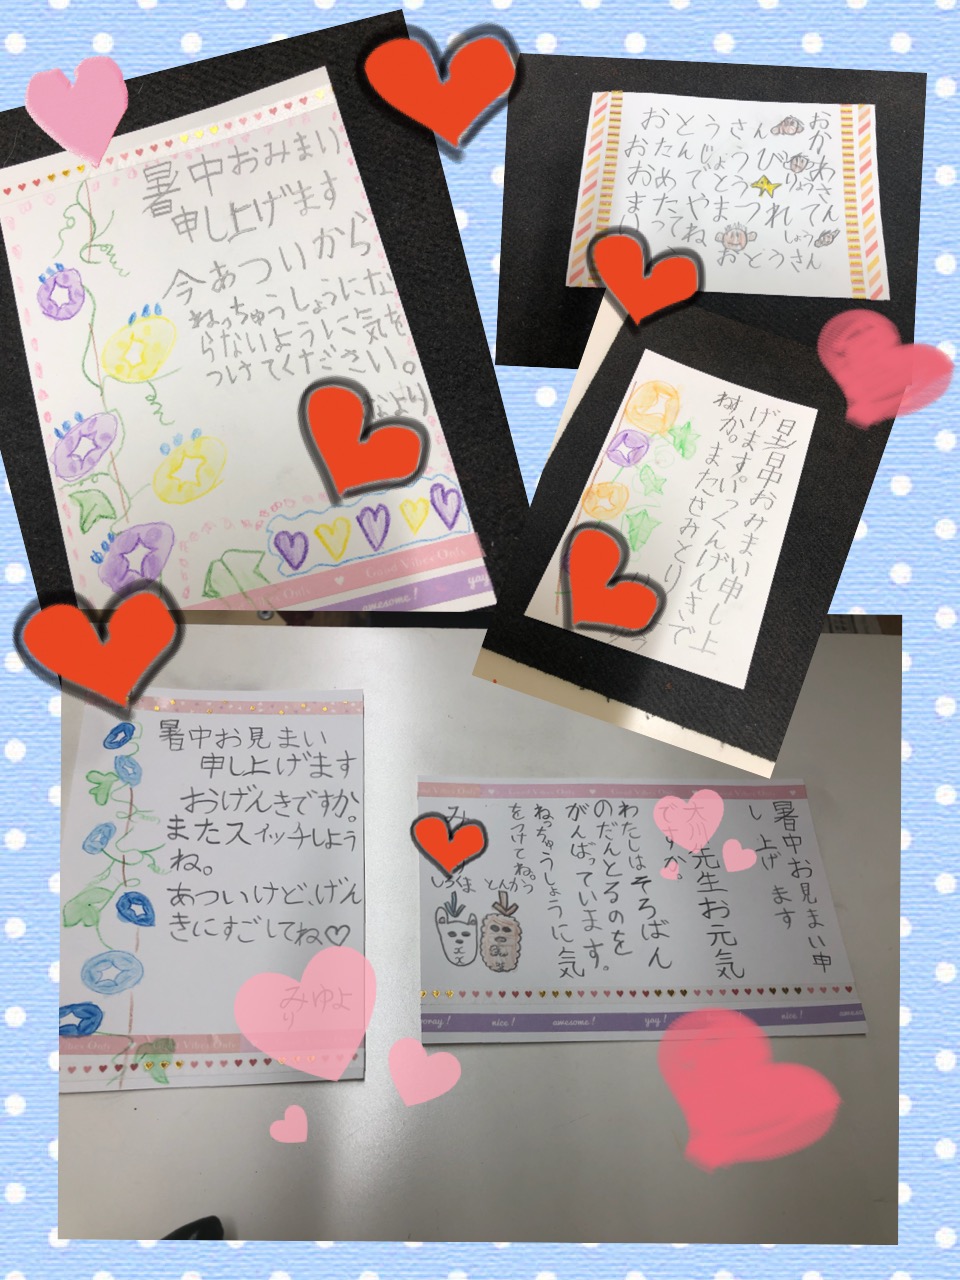 暑中おみまい
申し上げます
今あついから
ねっちゅうしょうにな
らないように気を
つけてください。
なより
Good Vibes Only
awesome!
yay
おとうさん
おたんじょうび
おめでとう
またやまつれてい
ってね
おかあさん
りょう
しょう
おとうさん
暑中おみまい申し上
げます。いっくんげんきで
すか。またせみとり
暑中お見まい
申し上げます
おげんきですか。
またスイッチしよう
ね。
あついけど、げん
きにすごしてね♡
みゆより
暑中お見まい申
し上げます
大川先生お元気
ですか。
わたしはそろばん
のだんとるのを
がんばっています。
ねっちゅうしょうに気
をつけてね。
み
しろくま
とんかつ
nice!
awesome!
yay!
nice!